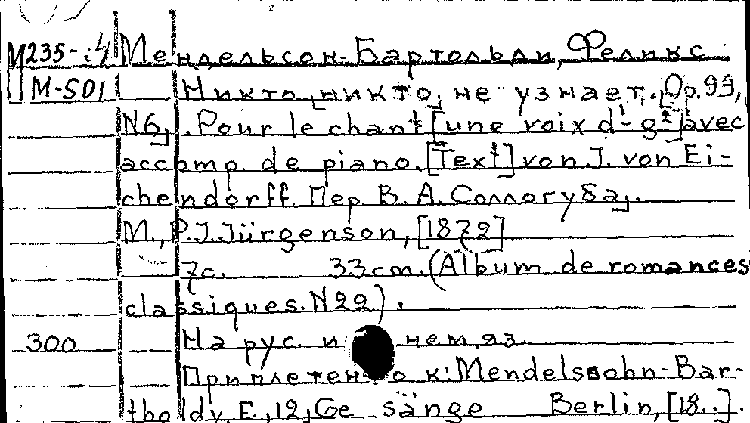 М235-:4 Мендельсон-Бартольди, Феликс
M-501 Никто, никто, не узнает. Op. 99,
N6, . Pour le chant [une voix d¹-g²] avec
accomp. de piano. [Text] von J. von Ei-
chendorff. Пер. В. А. Соллогуба,.
М., P. J. Jürgenson, [1872]
7с. 33cm. (Album de romances
classiques. N22).
300 На рус. и нем. яз.
Приплетено к: Mendelssohn-Bar-
tholdy, F., 12, Gesänge Berlin, [18..].